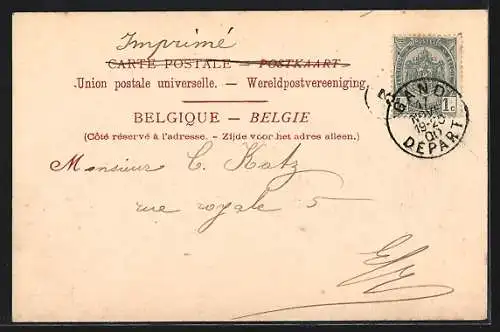 Imprimé
CARTE POSTALE — POSTKAART
Union postale universelle. — Wereldpostvereeniging
BELGIQUE – BELGIE
(Côté réservé à l'adresse. – Zijde voor het adres alleen.)
Monsieur C. Katz
rue royale 5
E/V
1c
GAND
17
NOVE
19-20
00
DEPART